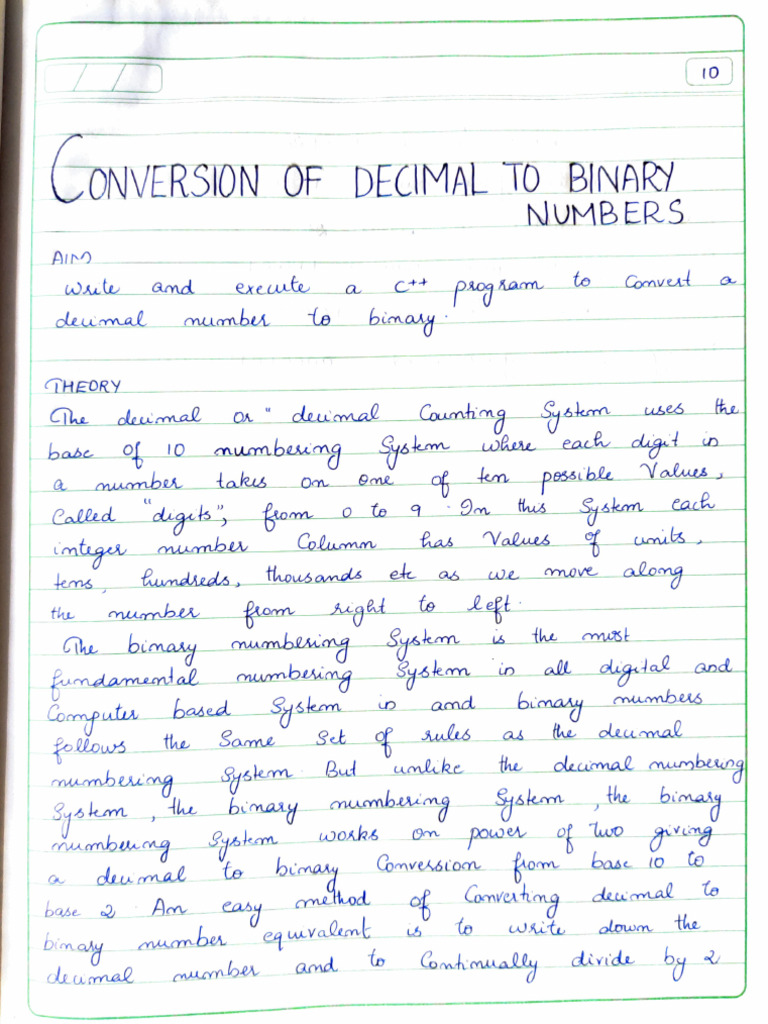 / /
10
CONVERSION OF DECIMAL TO BINARY
NUMBERS
AIM
Write and execute a C++ program to convert a
decimal number to binary.
THEORY
The decimal or " decimal Counting System uses the
base of 10 numbering System where each digit in
a number takes on one of ten possible Values,
Called "digits", from 0 to 9. In this System each
integer number Column has Values of units,
tens, hundreds, thousands etc as we move along
the number from right to left.
The binary numbering System is the most
fundamental numbering System in all digital and
Computer based System in and binary numbers
follows the Same Set of rules as the decimal
numbering System. But unlike the decimal numbering
System, the binary numbering System, the binary
numbering System works on power of Two giving
a decimal to binary Conversion from base 10 to
base 2. An easy method of Converting decimal to
binary number equivalent is to write down the
decimal number and to Continually divide by 2